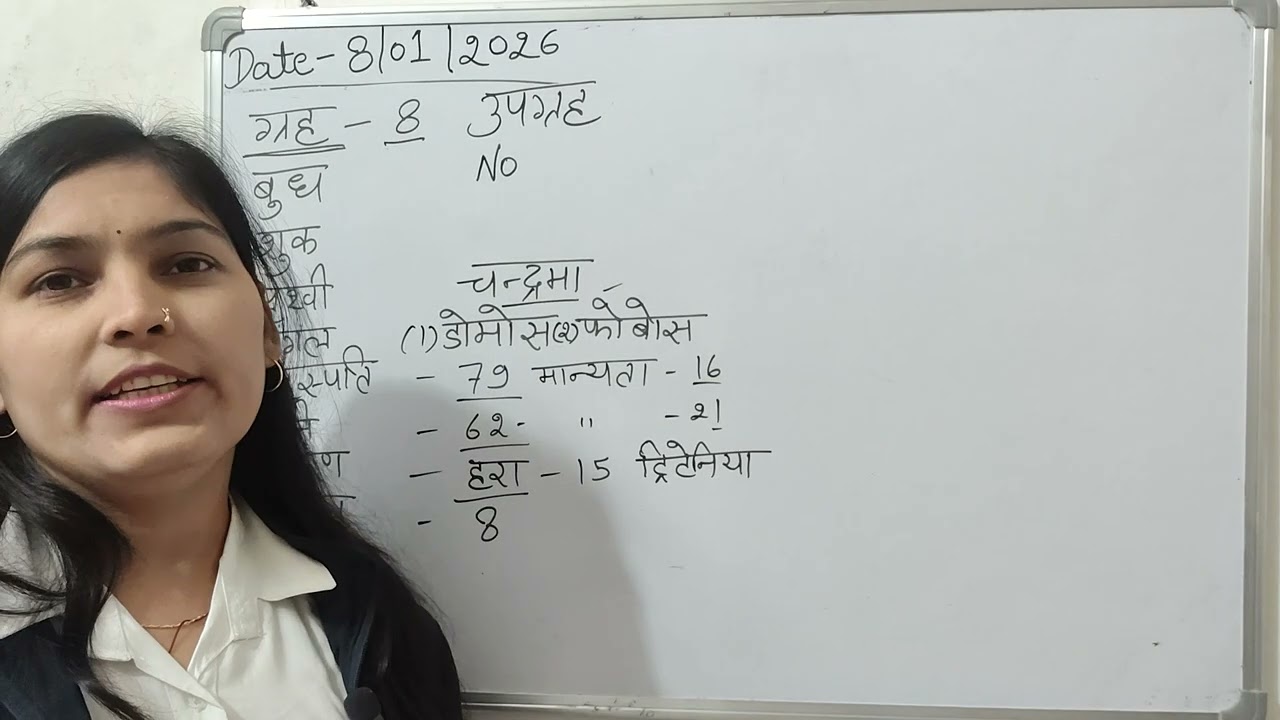 Date - 8/01/2026
ग्रह - 8 उपग्रह
बुध No
शुक
चन्द्रमा
(1) डोमोस (2) फोबोस
- 79 मान्यता - 16
- 62 - " - 21
- हरा - 15 ट्रिटेनिया
- 8